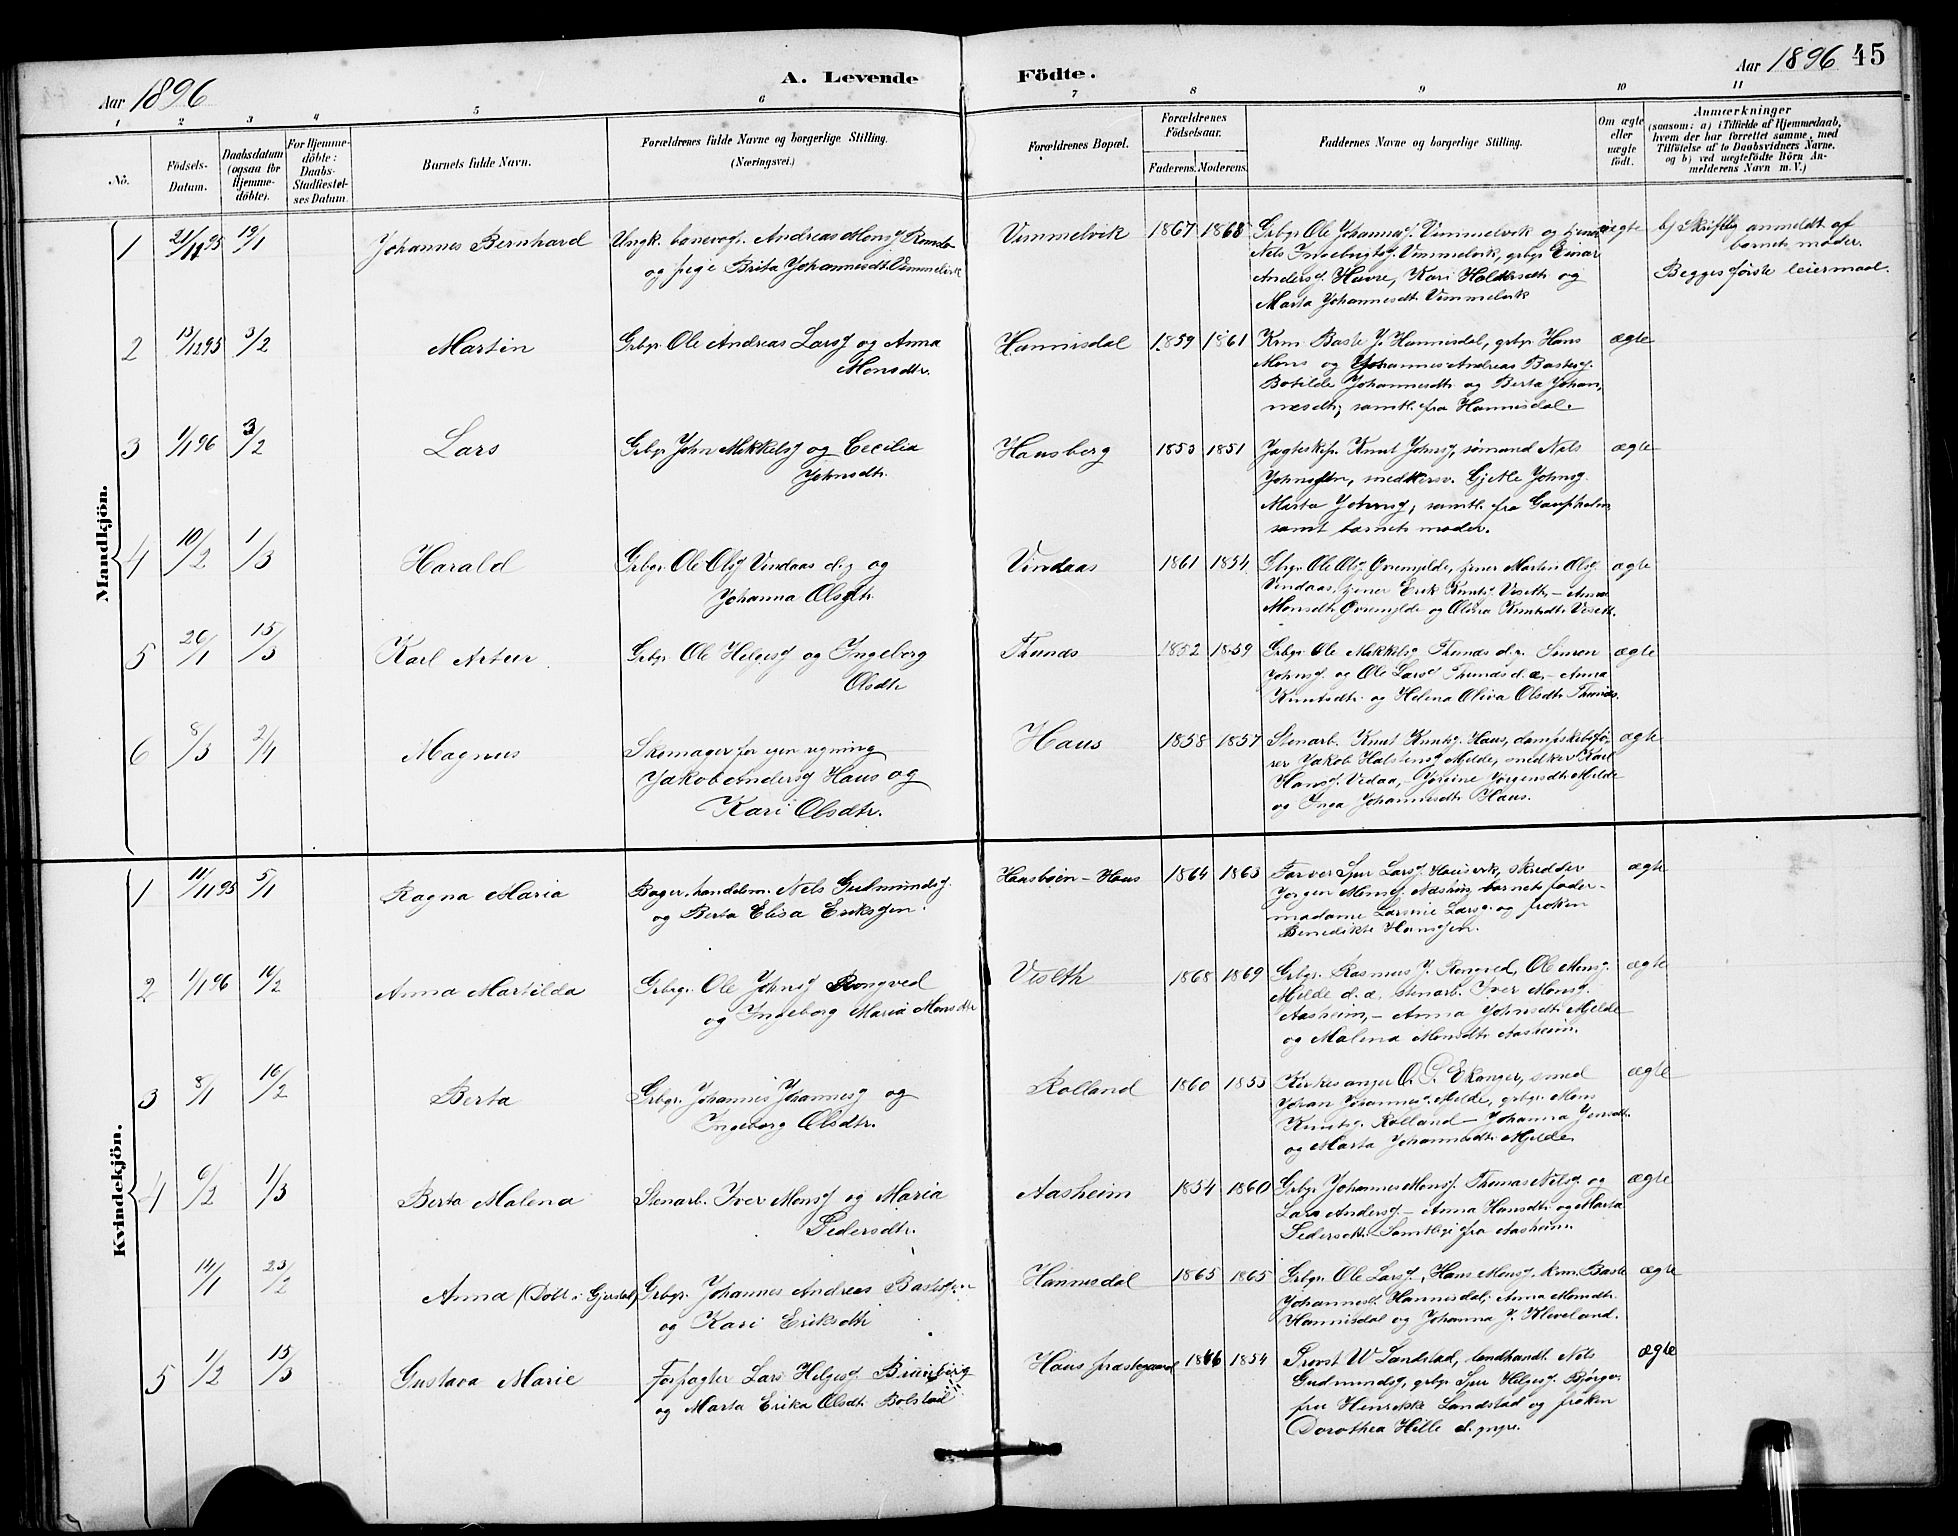 Aar 1896
A. Levende Födte.
Aar 1896 45
1 2 3 4 5 6 7 8 9 10 11
No.
Födsels-Datum.
Daabsdatum (ogsaa for Hjemmedöbte).
For Hjemmedöbte: Daabs-Stadfæstelses Datum.
Barnets fulde Navn.
Forældrenes fulde Navne og borgerlige Stilling. (Næringsvei.)
Forældrenes Bopæl.
Forældrenes Födselsaar.
Faderens. Moderens.
Faddernes Navne og borgerlige Stilling.
Om ægte eller uægte födt.
Anmærkninger
(saasom: a) i Tilfælde af Hjemmedaab,
hvem der har forrettet samme, med
Tilföielse af to Daabsvidners Navne,
og b) ved uægtefödte Börn Anmelderens Navn m. V.)
Mandkjön.
1 19/1 Johannes Bernhard
Ungk. Andreas Monsf
og pige Brita Johannesdtr. Vimmelvik
Vimmelvik 1867 1868
Grbgr. Ole Johannesf. Vimmelvik og tjener
Nels Ingebrigtsf. Vimmelvik, grbgr. Einar
Andersf. Havre, Kari Haldorsdtr. og
Marta Johannesdtr. Vimmelvik
uægte
b) Skriftlig anmeldt af
barnets moder.
Begges første leiermaal.
2 13/12 95 3/2 Martin
Grbgr. Ole Andreas Larsf og Anna
Monsdtr.
Hannisdal 1859 1861
Krm. Baste J. Hannisdal, grbgr. Hans
Mons og Johannes Andreas Bastesf.
Botilde Johannesdtr. og Berta Johan-
nesdtr., samtl. fra Hannisdal.
ægte
3 1/1 96 3/2 Lars
Grbgr. John Mikkelsf og Cecilia
Johnsdtr.
Hausberg 1853 1851
Jagteskip. Knut Johnsf, sømand Nels
Johnsen, snedkersv. Gjetle Johnsf.
Marta Johnsf, samtl. fra Gaupholm
samt barnets moder.
ægte
4 10/2 1/3 Harald
Grbgr. Ole Olsf Vindaas d.y. og
Johanna Olsdtr.
Vindaas 1861 1854
Grbgr. Ole Olsf tjener Martin Olsf
Vindaas, tjener Erik Knutsf. Veseth. - Anna
Monsdtr. og Olivia Knutsdtr. Veseth.
ægte
5 26/1 15/3 Karl Artur
Grbgr. Ole Helgesf og Ingeborg
Olsdtr
Thunæs 1852 1859
Grbgr. Ole Mikkelsf. Thunæs d.y. Simon
Johnsf. og Ole Larsf Thunæs d.æ. - Anna
Knutsdtr. og Helena Oliva Olsdtr. Thunæs.
ægte
6 8/3 2/4 Magnus
Skomager for egen regning
Jakob Andersf Haus og
Kari Olsdtr.
Haus 1858 1857
Stenarb. Knut Knutsf. Haus, dampskibsfø-
rer Jakob Halstensf Milde, snedker Karl
Hansf. Vedaa, - Jorgine Jørgensdtr. Milde
og Inga Johannesdtr. Haus.
ægte
Kvindekjön.
1 11/11 95 5/1 Ragna Maria
Bager, handelsm. Nels Gudmundsf.
og Berta Elisa Eriksen.
Hausbøen - Haus 1864 1863
Farver Sjur Larsf. Hausvik, Skredder
Jørgen Monsf. barnets fader -
madame Larsine Larsf. og frøken
Benedikte Hansen.
ægte
2 1/1 96 16/2 Anna Martilda
Grbgr. Ole Johnsf Rongved
og Ingeborg Maria Monsdtr
Veseth 1868 1869
Grbgr. Rasmus J. Rongved, Ole Monsf.
Milde d.æ. stenarb. Iver Monsf.
Aasheim, - Anna Johnsdtr. Mjelde
og Malena Monsdtr. Aasheim.
ægte
3 8/1 16/2 Berta
Grbgr. Johannes Johannesf og
Ingeborg Olsdtr.
Rolland 1860 1853
Kirkesanger O. G. Ekanger, smed
Johan Johannesf. Milde, grbgr. Mons
Knutsf. Rolland - Johanna Jensdtr.
og Marta Johannesdtr. Mjelde
ægte
4 6/2 1/3 Berta Malena
Stenarb. Iver Monsf og Maria
Pedersdtr.
Aasheim 1854 1860
Grbgr. Johannes Monsf. Thomas Nelsf og
Lars Andersf. - Anna Hansdtr. og Marta
Pedersdtr. - Samtlige fra Aasheim.
ægte
14/1 23/2 Anna (Døbt i Gjerstad)
Grbgr. Johannes Andreas Bastesen
og Kari Eriksdtr
Hannisdal 1865 1865
Grbgr. Ole Larsf, Hans Monsf. krm. Baste
Johannesf. Hannisdal, Anna Monsdtr.
Hannisdal og Johanna J. Kleveland.
ægte
5 1/2 15/3 Gustava Marie
Forpagter Lars Helgesf
og Marta Erika Olsdtr. Bolstad
Haus præstegaard 1854
Provst W. Landstad, landhandl. Nels
Gudmundsf, grbgr. Sjur Helgesf. Bjørge,
fru Henrikke Landstad og frøken
Dorothea Hille d. yngre.
ægte